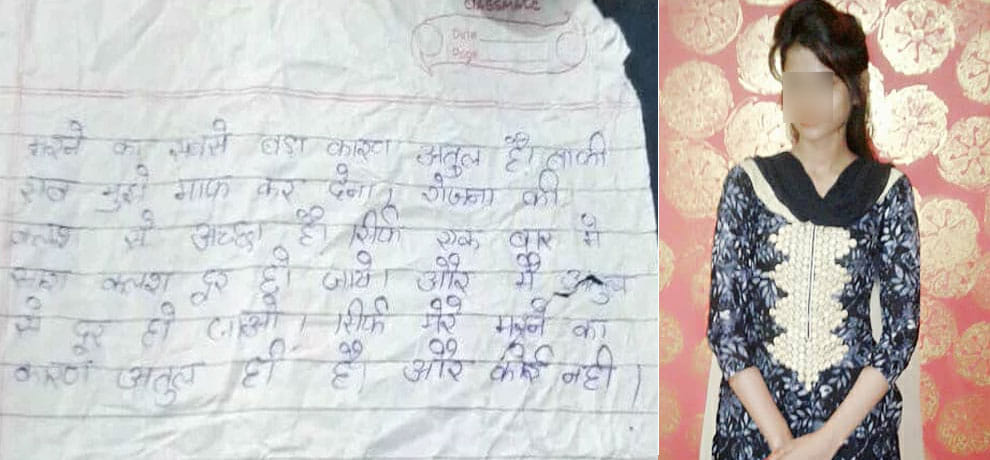 CLASSMATE
Date
Page
मरने का सबसे बड़ा कारण अतुल है। बाकी
सब मुझे माफ कर देना। रोजाना की
कलश से अच्छा है। सिर्फ एक बार में
सारा कलश दूर हो जाये। और मैं अतुल
से दूर हो जाओ। सिर्फ मेरे मरने का
कारण अतुल ही है। और कोई नही।